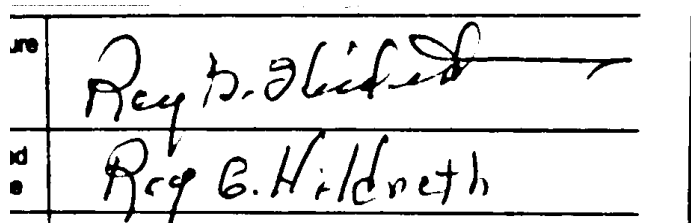 ure
Roy G. Hildreth
ed
e
Roy G. Hildneth